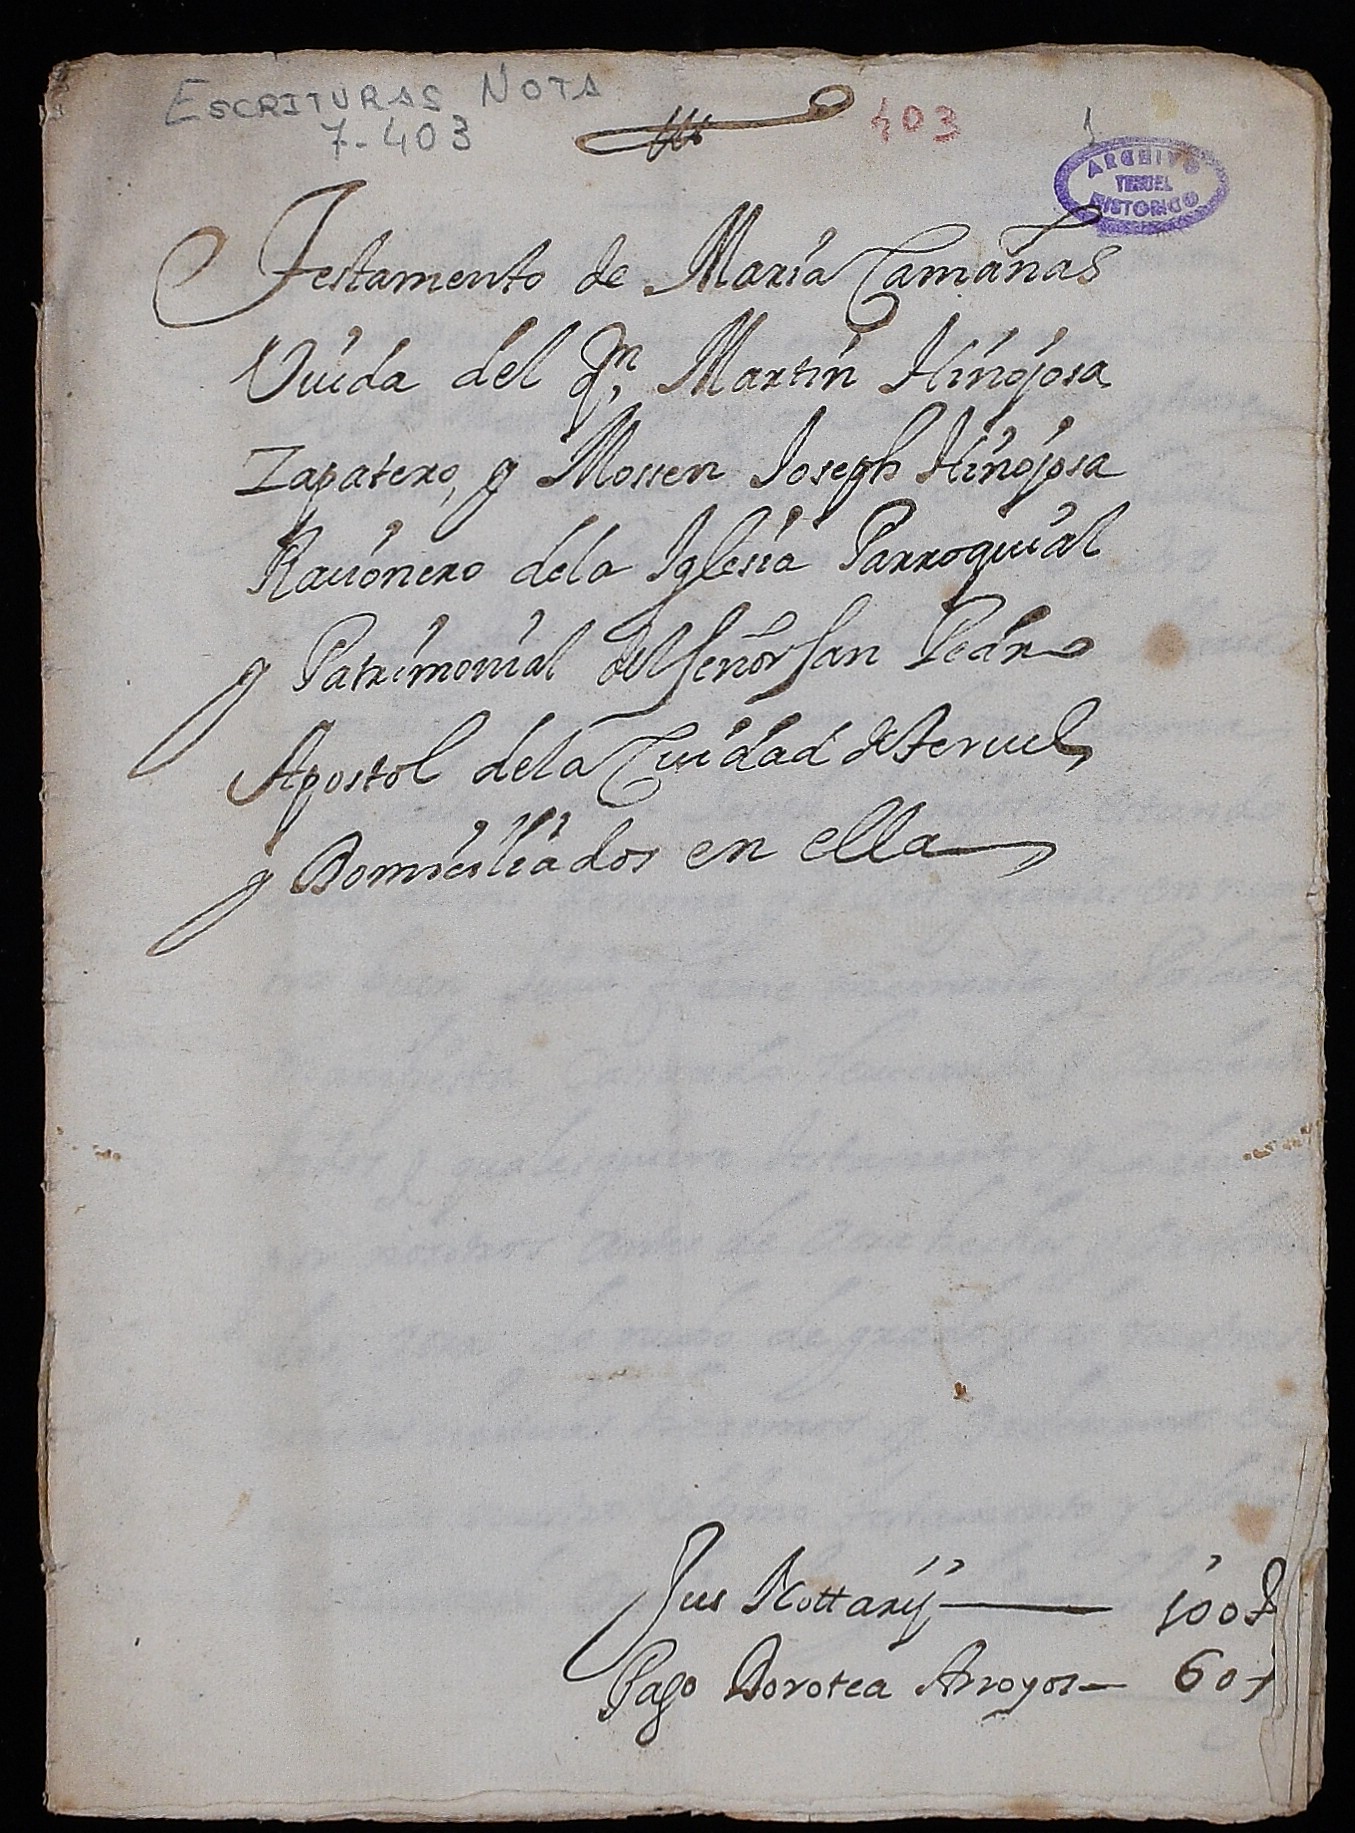 ESCRITURAS NOTA
7-403
403
1
ARCHIVO
TERUEL
HISTORICO
Testamento de María Camañas
Viuida del qm. Martin Hinojosa
Zapatero, y Mossen Joseph Hinojosa
Racionero dela Iglesia Parroquial
y Patrimonial del señor san Pedro
Apostol dela Ciudad de Teruel,
y Domiciliados en ella
Jus Nottarij 100
Pago Dorotea Arroyos 60